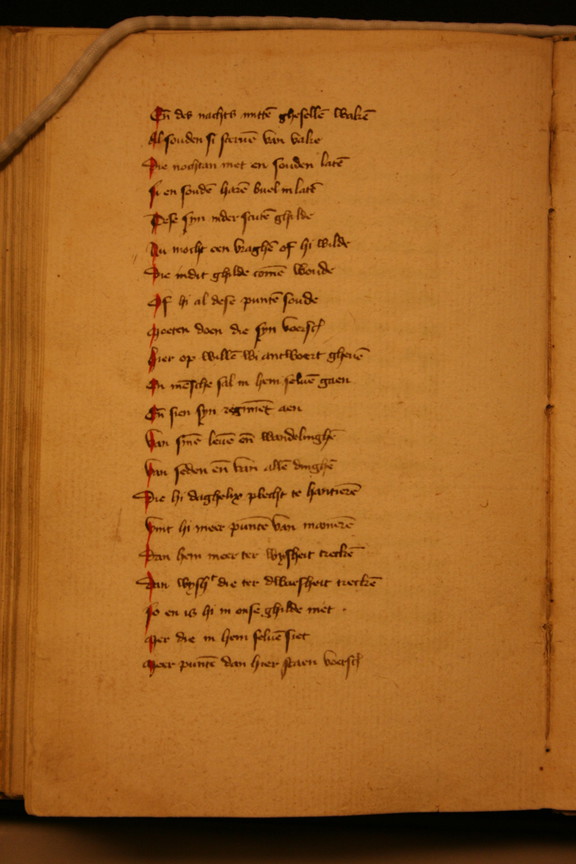 En̄ des nachts mittē ghesellē wakē
Al souden si steruē van vake
Die nochtan niet en souden latē
Si en soudē harē buel in latē
Dese syn inder scutē ghilde
Nu mocht een vraghē of hi wilde
Die in dit ghilde comē woude
Of hi al dese puntē soude
Moeten doen die syn voerscͭ
Hier op willē wi antwoert gheuē
En mēsche sal in hem seluē gaen
En̄ sien syn regimēt aen
Van sinē leuē en̄ wandelinghē
Van seden en̄ van allē dinghē
Die hi daghelix plecht te hantierē
Vint hi meer puntē van manierē
Dan hem meer ter wysheit treckē
Dan wyshᵗ die ter dwaesheit treckē
So en is hi in onse ghilde niet .
Mer die in hem seluē siet
Meer puntē dan hier staen voerscͭ